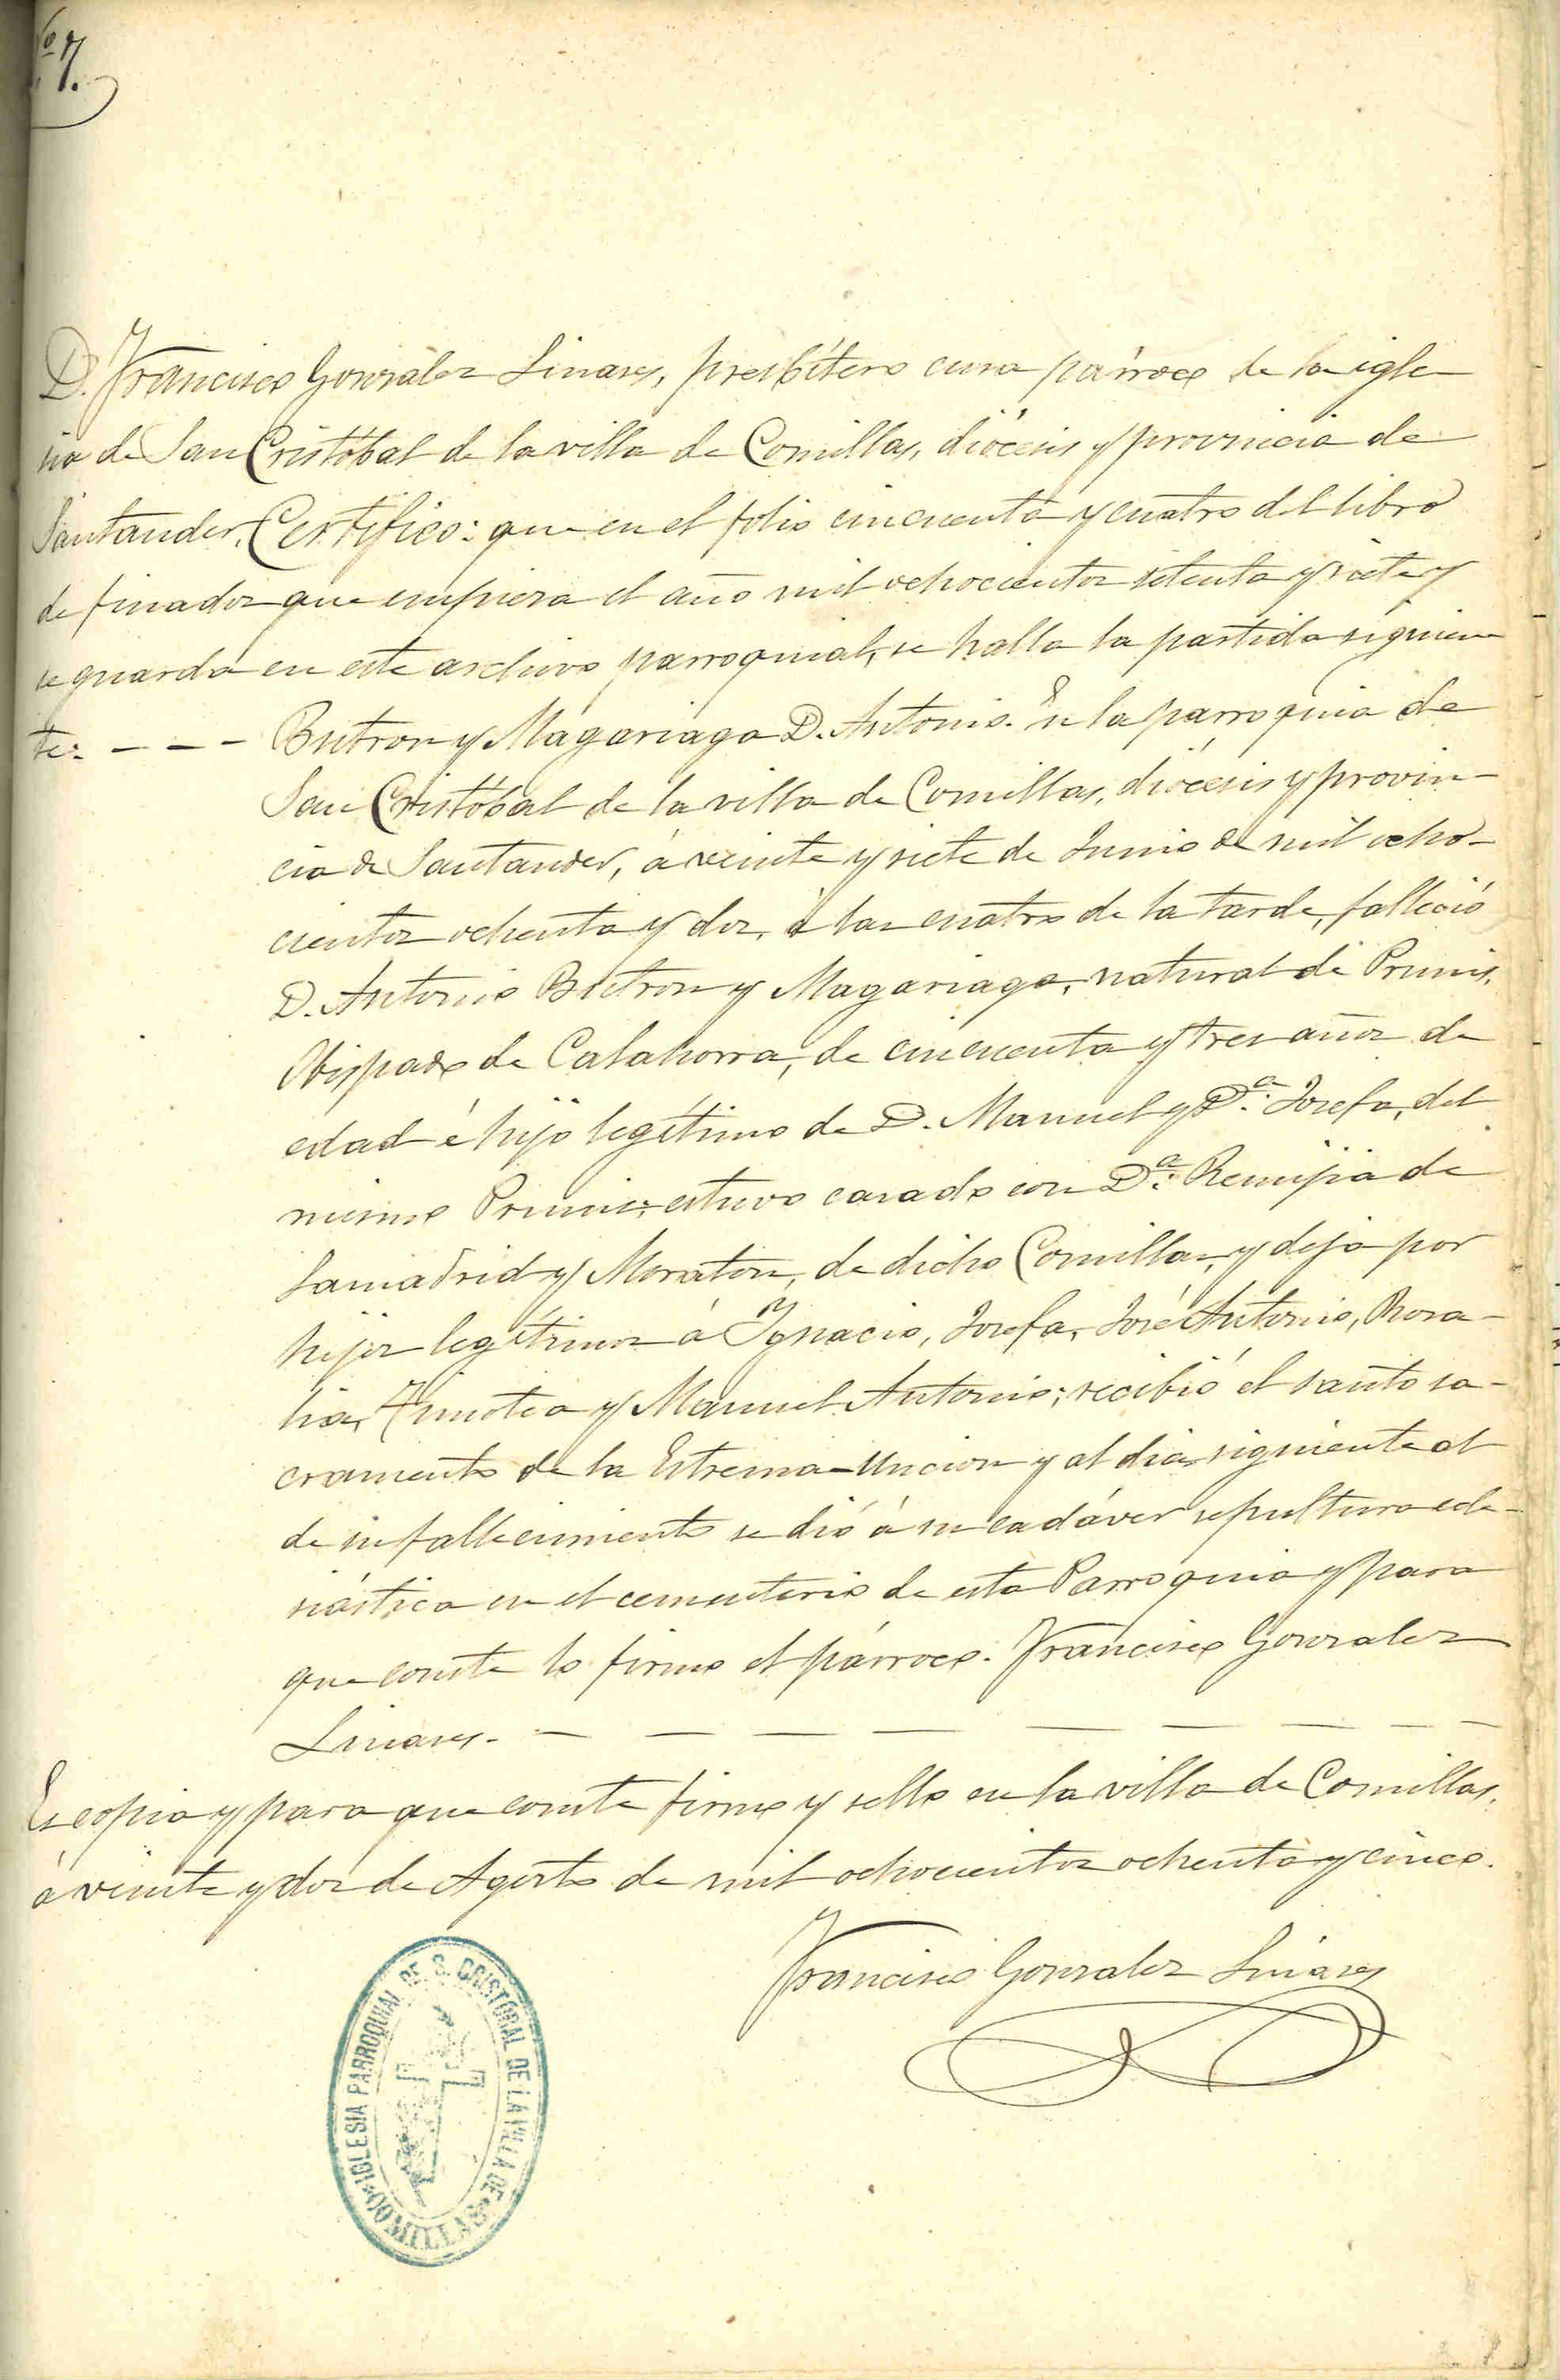 Nº 7.
D. Francisco Gonzalez Linares, presbítero cura párroco de la igle-
sia de San Cristóbal de la villa de Comillas, diócesis y provincia de
Santander, Certifico: que en el folio cincuenta y cuatro del libro
de finados que empieza el año mil ochocientos setenta y siete y
se guarda en este archivo parroquial, se halla la partida siguien-
te: - - - Butron y Magariaga D. Antonio. En la parroquia de
San Cristóbal de la villa de Comillas, diócesis y provin-
cia de Santander, á veinte y siete de Junio de mil ocho-
cientos ochenta y dos, á las cuatro de la tarde, falleció
D. Antonio Butron y Magariaga, natural de
Obispado de Calahorra, de cincuenta y tres años de
edad é hijo legítimo de D. Manuel y Dª. Josefa, del
mismo estuvo casado con Dª. Remijia de
Lamadrid y Moraton, de dicho Comillas, y deja por
hijos legítimos á Ygnacio, Josefa, José Antonio, Rosa-
lia, Timotea y Manuel Antonio; recibió el santo sa-
cramento de la Estrema-Uncion y al dia siguiente al
de su fallecimiento se dió á su cadáver sepultura ecle-
siástica en el cementerio de esta Parroquia y para
que conste lo firmo el párroco. Francisco Gonzalez
Linares. - - - - - - - - -
Es copia y para que conste firmo y sello en la villa de Comillas,
á veinte y dos de Agosto de mil ochocientos ochenta y cinco.
Francisco Gonzalez Linares
IGLESIA PARROQUIAL DE S. CRISTOBAL DE LA VILLA DE COMILLAS